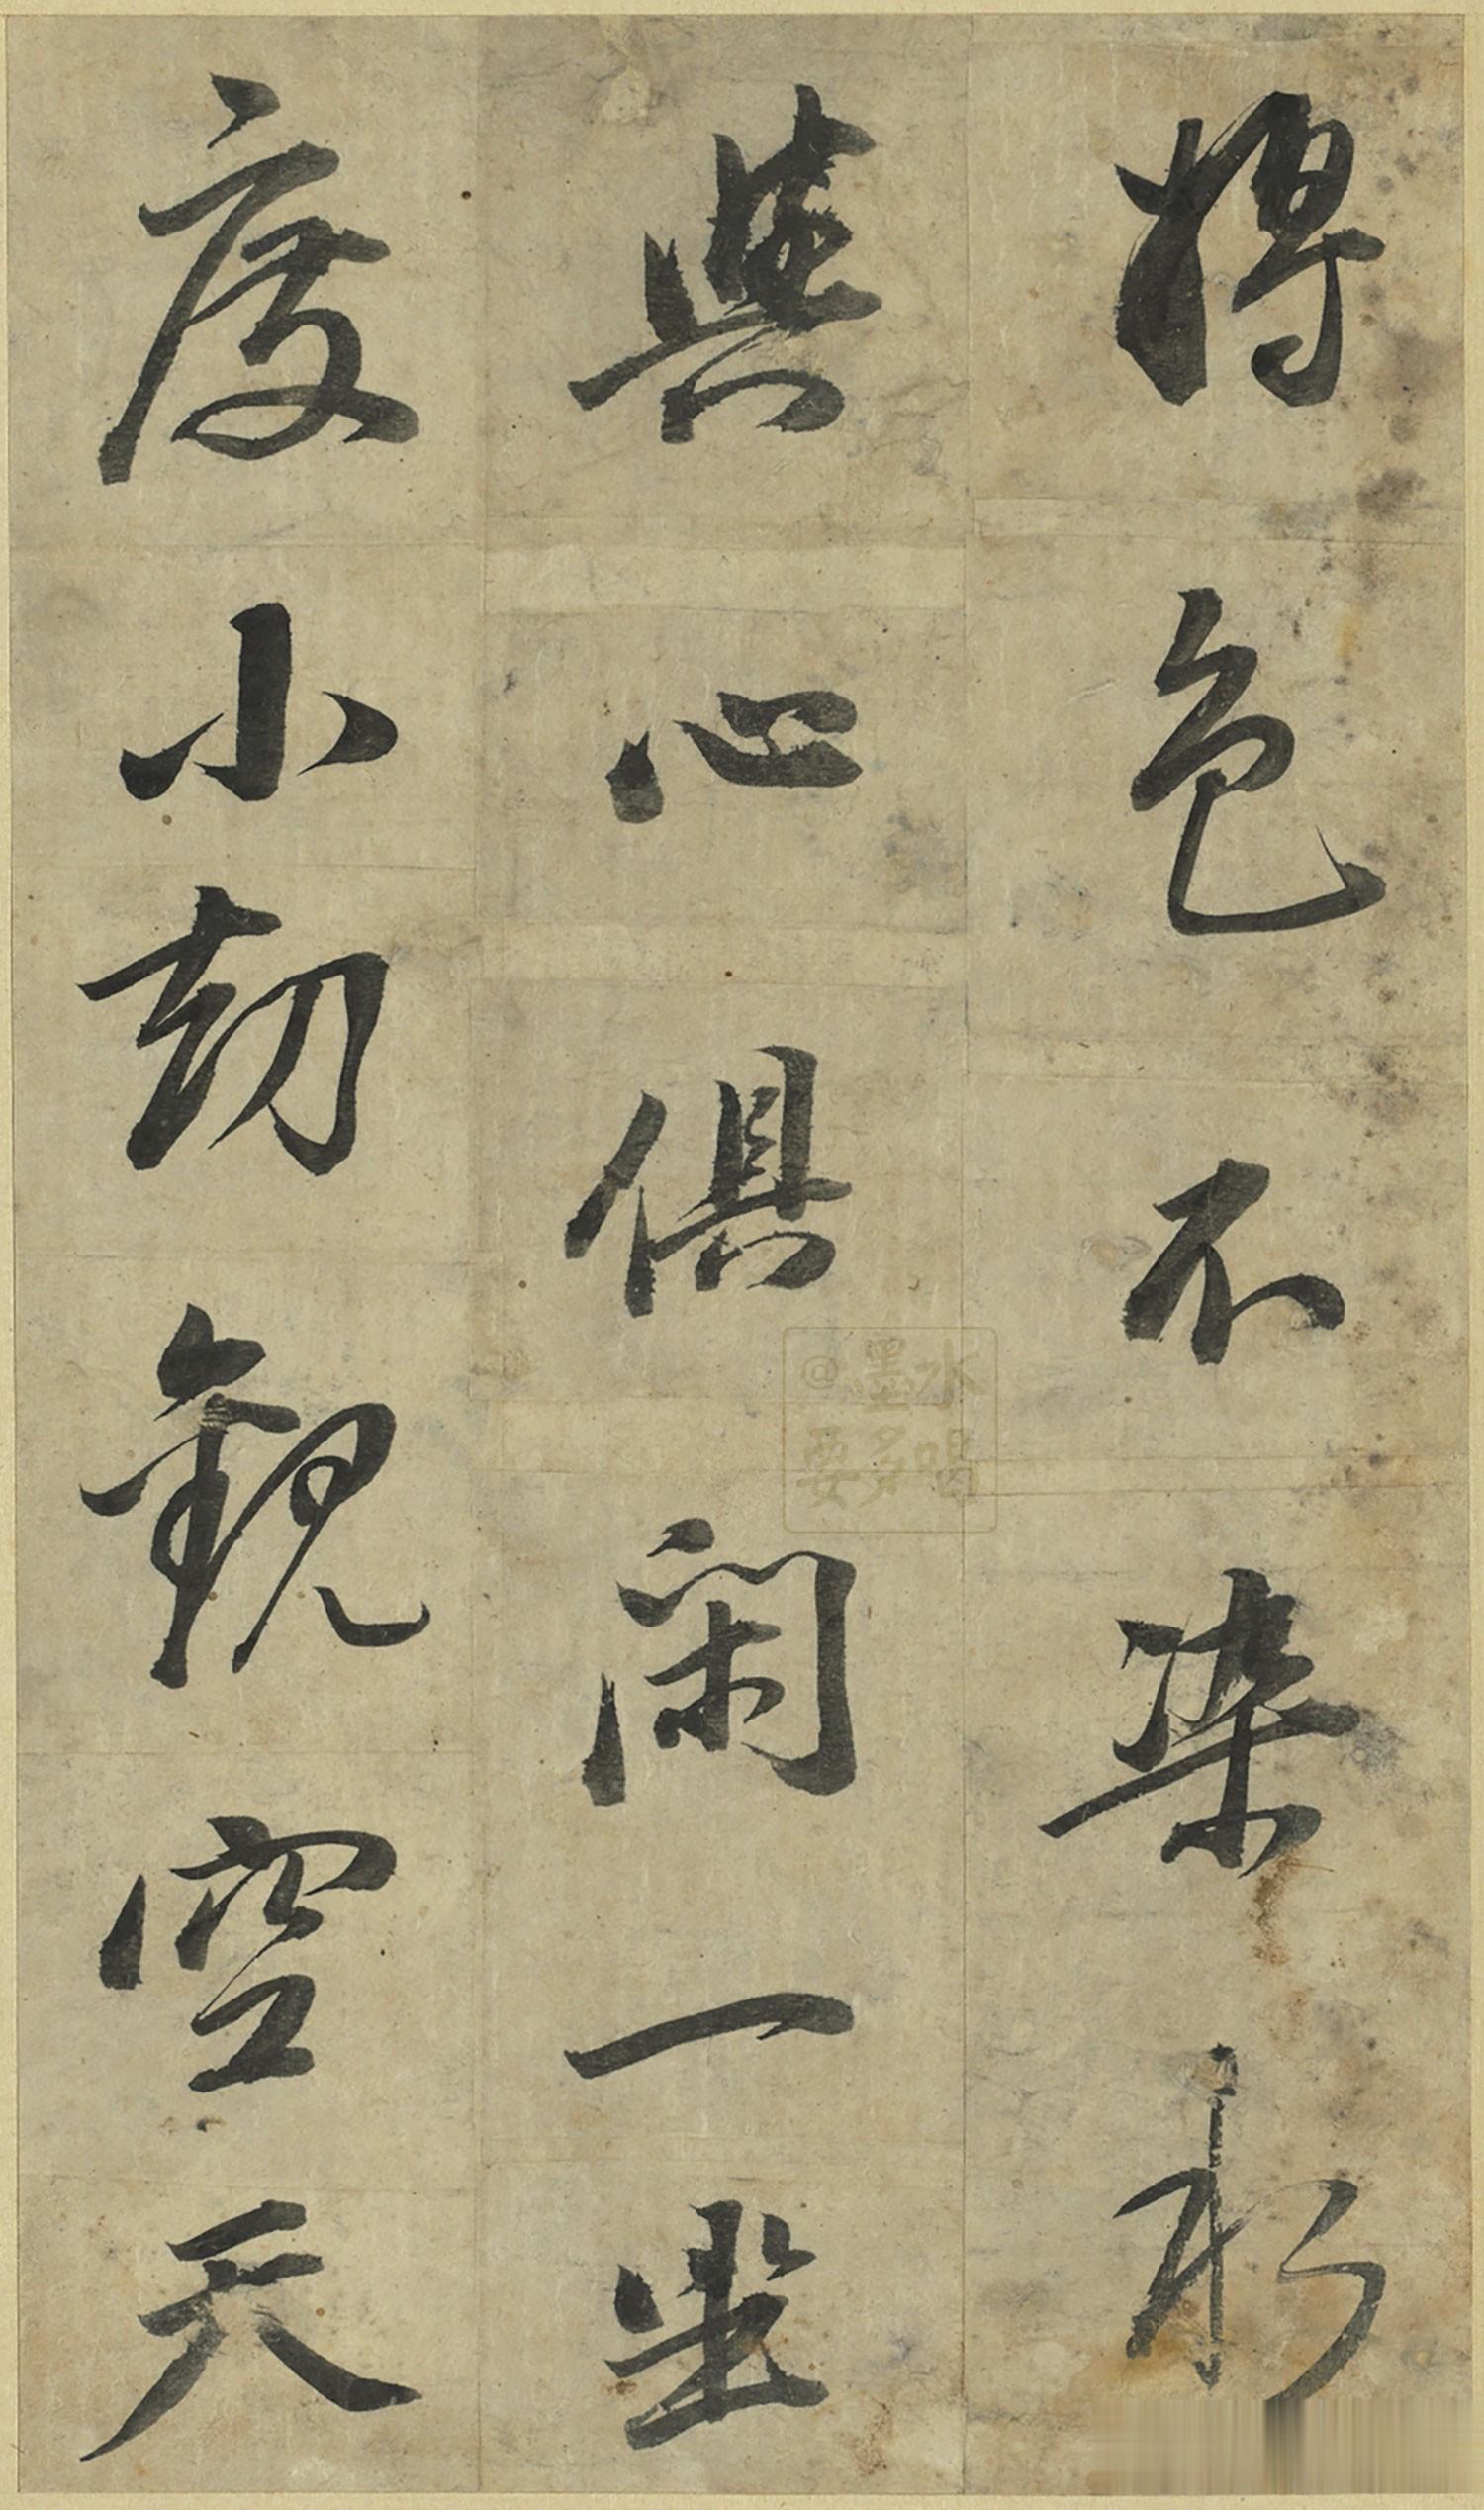 將色不染水
與心俱閑一坐
度小劫觀空天
@墨水
要多喝